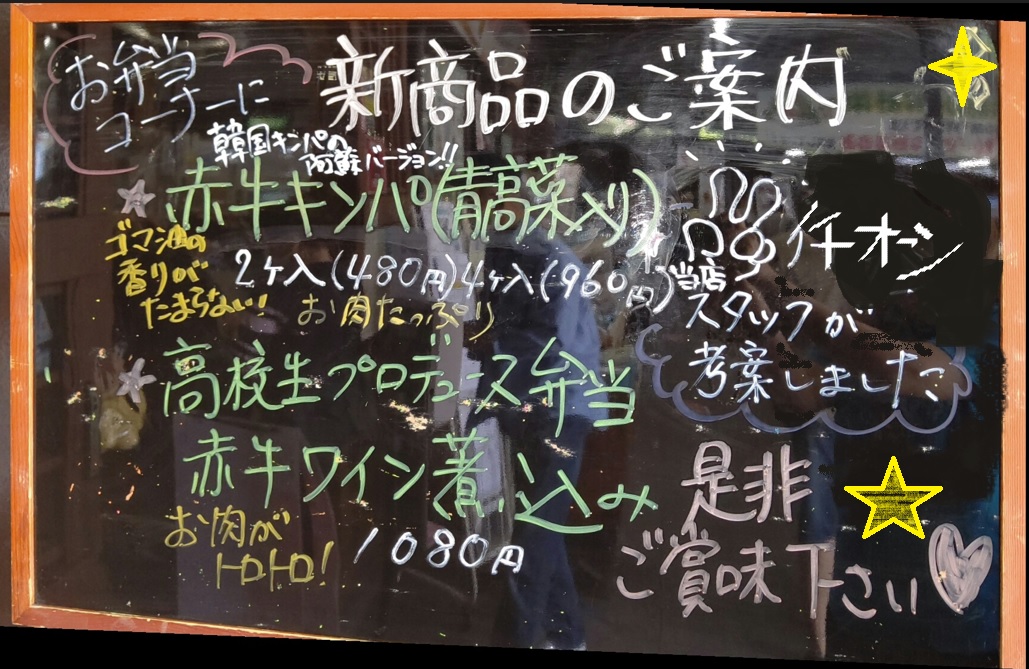 お弁当
コーナーに
新商品のご案内
韓国キンパの
阿蘇バージョン!!
赤牛キンパ(青高菜入り)
ゴマ油の
香りが
たまらない!
2ヶ入(480円)4ヶ入(960円)
お肉たっぷり
イチオシ
当店
スタッフが
考案しました
高校生プロデュース弁当
赤牛ワイン煮込み
お肉が
トロトロ!
1080円
是非
ご賞味下さい